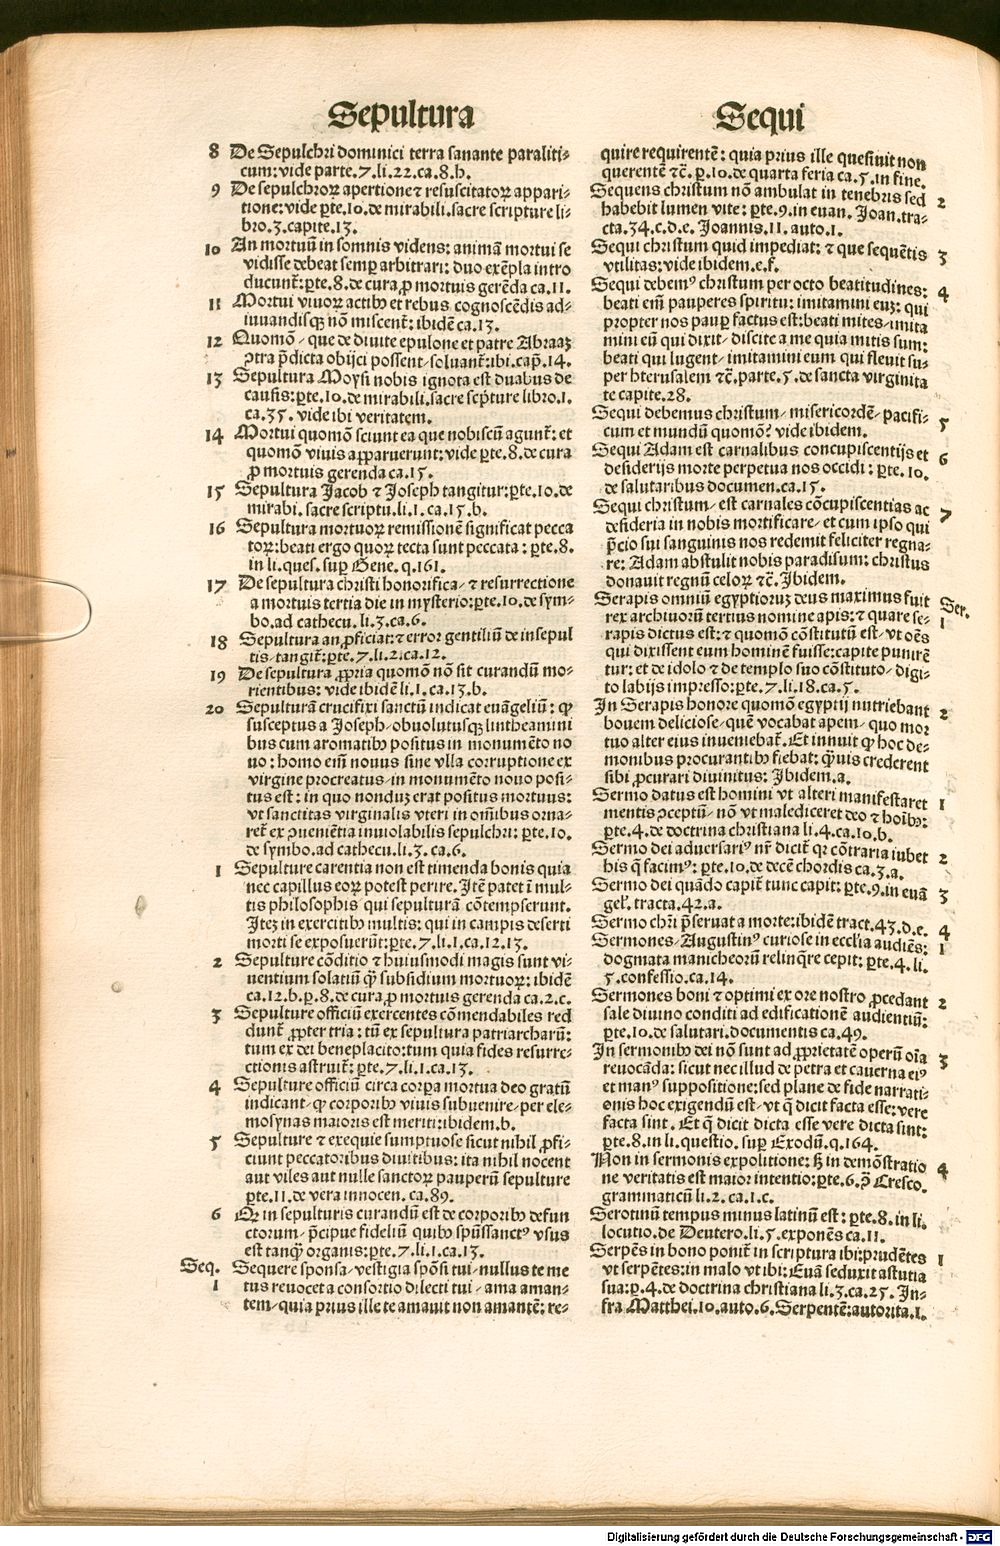 Sepultura
8 De Sepulchri dominici terra sanante paraliti⸗
cum: vide parte.7.li.22.ca.8.h.
9 De sepulchroꝝ apertione ⁊ resuscitatoꝝ appari⸗
tione: vide ꝑte.10.de mirabili.sacre scripture li⸗
bro.3.capite.13.
10 An mortuū in somnis videns: animā mortui se
vidisse debeat semꝑ arbitrari: duo exēpla intro
ducunt̄: ꝑte.8.de cura ꝓ mortuis gerēda ca.11.
11 Mortui viuoꝝ actibꝰ et rebus cognoscēdis ad⸗
iuuandisqꝫ nō miscent̄: ibidē ca.13.
12 Quomō / que de diuite epulone et patre Abraaꝫ
ꝯtra p̄dicta obijci possent / soluant̄: ibi.cap̄.14.
13 Sepultura Moysi nobis ignota est duabus de
causis: ꝑte.10.de mirabili.sacre scp̄ture libro.1.
ca.35. vide ibi veritatem.
14 Mortui quomō sciunt ea que nobiscū agunt̄: et
quomō viuis apparuerunt: vide ꝑte.8.de cura
ꝓ mortuis gerenda ca.15.
15 Sepultura Jacob ⁊ Joseph tangitur: ꝑte.10.de
mirabi. sacre scriptu.li.1.ca.15.b.
16 Sepultura mortuoꝝ remissionē significat pecca
toꝝ: beati ergo quoꝝ tecta sunt peccata: ꝑte.8.
in li.ques. suꝑ Gene. q.161.
17 De sepultura christi honorifica / ⁊ resurrectione
a mortuis tertia die in mysterio: ꝑte.10.de sym⸗
bo.ad cathecu.li.3.ca.6.
18 Sepultura an ꝓficiat: ⁊ error gentiliū de insepul
tis / tangit̄: ꝑte.7.li.2.ca.12.
19 De sepultura ꝓpria quomō nō sit curandū mo⸗
rientibus: vide ibidē li.1.ca.13.b.
20 Sepulturā crucifixi sanctū indicat euāgeliū: ꝙ
susceptus a Joseph / obuolutusqꝫ lintheamini
bus cum aromatibꝰ positus in monumēto no
uo: homo em̄ nouus sine vlla corruptione ex
virgine procreatus / in monumēto nouo posi⸗
tus est: in quo nonduꝫ erat positus mortuus:
vt sanctitas virginalis vteri in om̄ibus orna⸗
ret̄ ex ꝯuenientia inuiolabilis sepulchri: ꝑte.10.
de symbo.ad cathecu.li.3.ca.6.
1 Sepulture carentia non est timenda bonis quia
nec capillus eoꝝ potest perire. Itē patet ī mul⸗
tis philosophis qui sepulturā cōtempserunt.
Iteꝫ in exercitibꝰ multis: qui in campis deserti
morti se exposuerūt: ꝑte.7.li.1.ca.12.13.
2 Sepulture cōditio ⁊ huiusmodi magis sunt vi⸗
uentium solatiū ꝙ̄ subsidium mortuoꝝ: ibidē
ca.12.b.p.8.de cura ꝓ mortuis gerenda ca.2.c.
3 Sepulture officiū exercentes cōmendabiles red
dunt̄ ꝓpter tria: tū ex sepultura patriarcharū:
tum ex dei beneplacito: tum quia fides resurre⸗
ctionis astruit̄: ꝑte.7.li.1.ca.13.
4 Sepulture officiū circa corꝑa mortua deo gratū
indicant / ꝙ corporibꝰ viuis subuenire / per ele⸗
mosynas maioris est meriti: ibidem.b.
5 Sepulture ⁊ exequie sumptuose sicut nihil ꝓfi⸗
ciunt peccatoribus diuitibus: ita nihil nocent
aut viles aut nulle sanctoꝝ pauperū sepulture
ꝑte.11.de vera innocen. ca.89.
6 Qꝛ in sepulturis curandū est de corporibꝰ defun
ctorum / p̄cipue fideliū quibꝰ sp̄ussanctꝰ vsus
est tanq̄ꝫ organis: ꝑte.7.li.1.ca.13.
Seq. Sequere sponsa / vestigia spōsi tui / nullus te me
1 tus reuocet a consortio dilecti tui / ama aman⸗
tem / quia prius ille te amauit non amantē: re⸗
Sequi
quire requirentē: quia prius ille quesiuit non
querentē ⁊c̄. p.10.de quarta feria ca.5.in fine.
Sequens christum nō ambulat in tenebris sed 2
habebit lumen vite: ꝑte.9.in euan. Joan.tra⸗
cta.34.c.d.e. Joannis.11. auto.1.
Sequi christum quid impediat: ⁊ que sequētis 3
vtilitas: vide ibidem.e.f.
Sequi debemꝰ christum per octo beatitudines: 4
beati em̄ pauperes spiritu: imitamini euꝫ: qui
propter nos pauꝑ factus est: beati mites / imita
mini eū qui dixit / discite a me quia mitis sum:
beati qui lugent / imitamini eum qui fleuit su⸗
per hierusalem ⁊c̄.parte.5.de sancta virginita
te capite.28.
Sequi debemus christum / misericordē / pacifi⸗ 5
cum et mundū quomō? vide ibidem.
Sequi Adam est carnalibus concupiscentijs et 6
desiderijs morte perpetua nos occidi: ꝑte.10.
de salutaribus documen.ca.15.
Sequi christum / est carnales cōcupiscentias ac 7
desideria in nobis mortificare / et cum ipso qui
p̄cio sui sanguinis nos redemit feliciter regna⸗
re: Adam abstulit nobis paradisum: christus
donauit regnū celoꝝ ⁊c̄. Ibidem.
Serapis omniū egyptioruꝫ deus maximus fuit Ser.
rex archiuorū tertius nomine apis: ⁊ quare se⸗ 1
rapis dictus est: ⁊ quomō cōstitutū est / vt oēs
qui dixissent eum hominē fuisse: capite punirē
tur: et de idolo ⁊ de templo suo cōstituto / digi⸗
to labijs impresso: ꝑte.7.li.18.ca.5.
In Serapis honore quomō egyptij nutriebant 2
bouem deliciose / quē vocabat apem / quo mor
tuo alter eius inueniebat̄. Et innuit ꝙ hoc de⸗
monibus procurantibꝰ fiebat: q̄uis crederent
sibi ꝓcurari diuinitus: Ibidem.a.
Sermo datus est homini vt alteri manifestaret 1
mentis ꝯceptū / nō vt malediceret deo ⁊ hoībꝰ:
ꝑte.4.de doctrina christiana li.4.ca.10.b.
Sermo dei aduersariꝰ nr̄ dicit̄ qꝛ cōtraria iubet 2
his q̄ facimꝰ: ꝑte.10.de decē chordis ca.3.a.
Sermo dei quādo capit̄ tunc capit: ꝑte.9.in euā 3
gel̓. tracta.42.a.
Sermo chr̄i p̄seruat a morte: ibidē tract.43.d.e. 4
Sermones / Augustinꝰ curiose in eccl̓ia audiēs: 1
dogmata manicheorū relinq̄re cepit: ꝑte.4.li.
5.confessio.ca.14.
Sermones boni ⁊ optimi ex ore nostro ꝓcedant 2
sale diuino conditi ad edificationē audientiū:
ꝑte.10.de salutari.documentis ca.49.
In sermonibꝰ dei nō sunt ad ꝓprietatē operū oīa 3
reuocāda: sicut nec illud de petra et cauerna eiꝰ
et manꝰ suppositione: sed plane de fide narrati⸗
onis hoc exigendū est / vt q̄ dicit facta esse: vere
facta sint. Et q̄ dicit dicta esse vere dicta sint:
ꝑte.8.in li.questio. suꝑ Exodū.q.164.
Non in sermonis expolitione: sꝫ in demōstratio 4
ne veritatis est maior intentio: ꝑte.6.ꝯ̄ Cresco.
grammaticū li.2. ca.1.c.
Serotinū tempus minus latinū est: ꝑte.8.in li.
locutio.de Deutero.li.5.exponēs ca.11.
Serpēs in bono ponit̄ in scriptura ibi: prudētes 1
vt serpētes: in malo vt ibi: Euā seduxit astutia
sua: p.4.de doctrina christiana li.3.ca.25. In⸗
fra Matthei.10.auto.6. Serpentē: autorita.1.
Digitalisierung gefördert durch die Deutsche Forschungsgemeinschaft - DFG